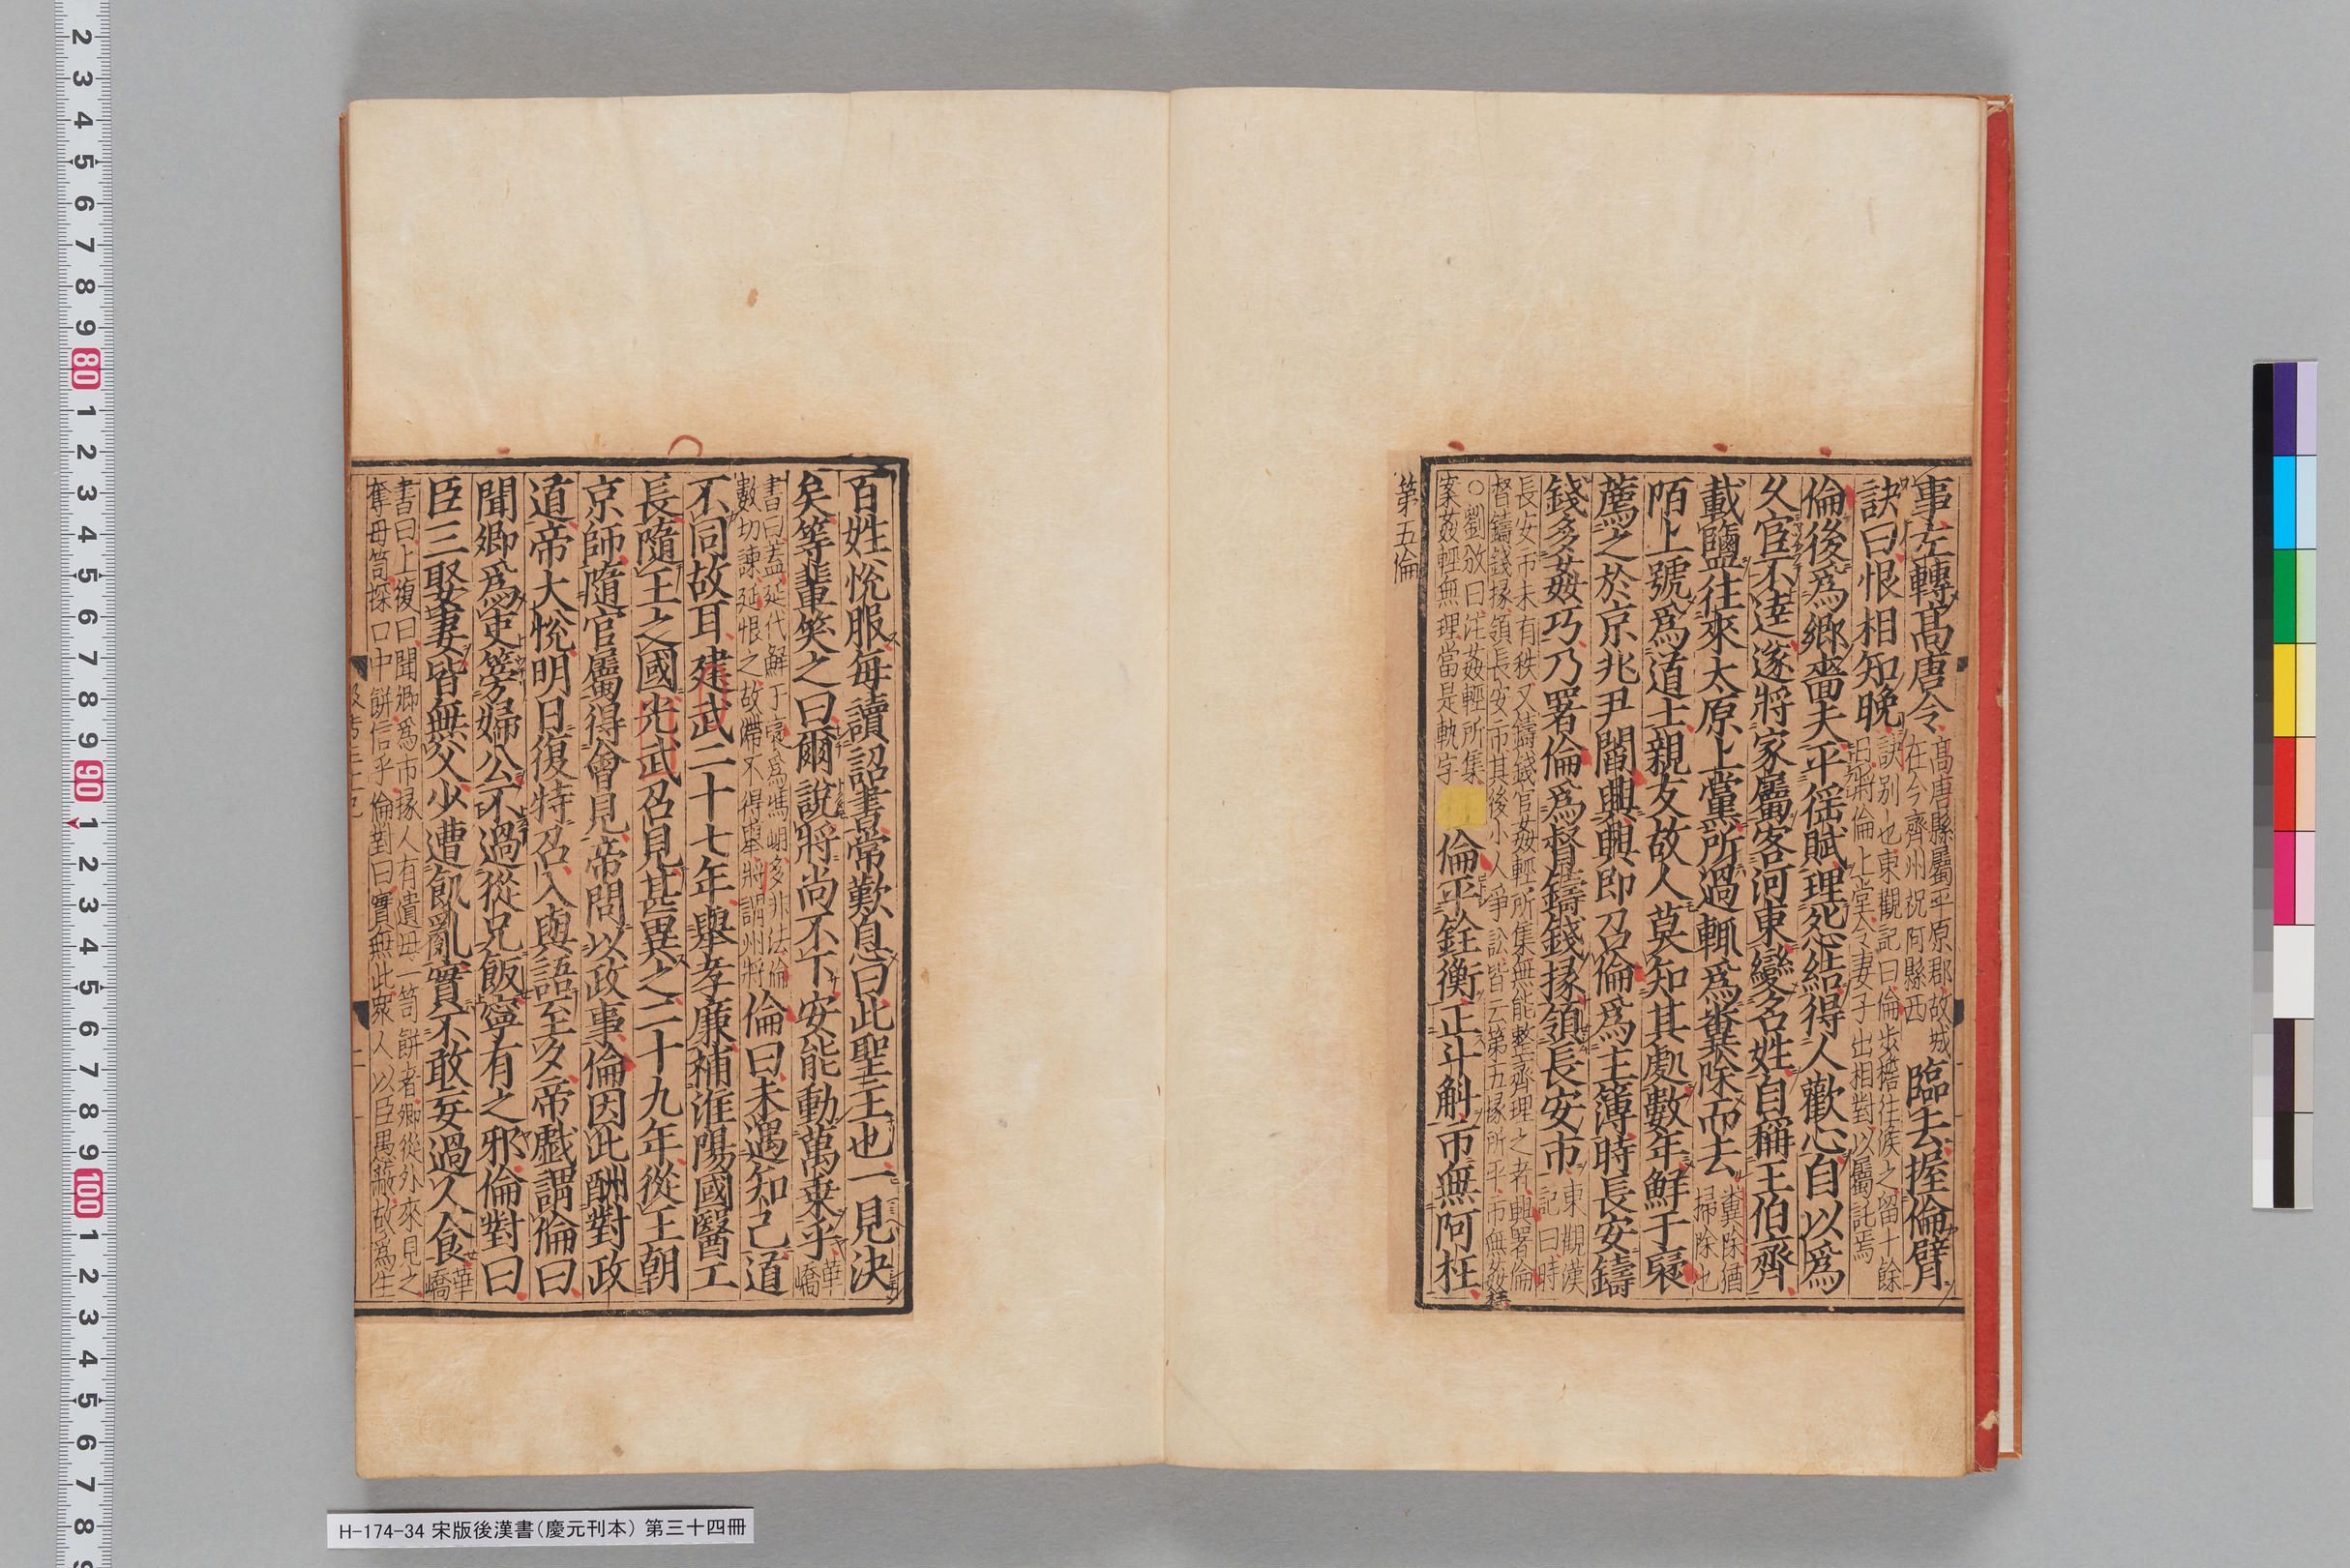 事左轉高唐令高唐縣屬平原郡故城在今齊州祝阿縣西臨去握倫臂
訣曰恨相知晚訣別也東觀記曰倫步擔往候之留十餘日將倫上堂令妻子出相對以屬託焉
倫後爲鄉嗇夫平徭賦理怨結得人歡心自以爲
久宦不達遂將家屬客河東變名姓自稱王伯齊
載鹽往來太原上黨所過輒爲糞除而去糞除猶掃除也
陌上號爲道士親友故人莫知其處數年鮮于裒
薦之於京兆尹閻興興即召倫爲主簿時長安鑄
錢多姦巧乃署倫爲督鑄錢掾領長安市東觀漢記曰時
長安市未有秩又鑄錢官姦輕所集無能整齊理之者興署倫督鑄錢掾領長安市其後小人爭訟皆云第五掾所平市無姦枉
○劉攽曰注姦輕所集案姦輕無理當是軌字倫平銓衡正斗斛市無阿枉
第五倫
百姓悅服每讀詔書常歎息曰此聖主也一見決
矣等輩笑之曰爾說將尚不下安能動萬乘乎華嶠
書曰蓋延代鮮于裒爲馮翊多非法倫數切諫延恨之故滯不得舉將謂州將倫曰未遇知己道
不同故耳建武二十七年舉孝廉補淮陽國醫工
長隨王之國光武召見甚異之二十九年從王朝
京師隨官屬得會見帝問以政事倫因此酬對政
道帝大悅明日復特召入與語至夕帝戲謂倫曰
聞卿爲吏篣婦公不過從兄飯寧有之邪倫對曰
臣三娶妻皆無父少遭飢亂實不敢妄過人食華嶠
書曰上復曰聞卿爲市掾人有遺母一笥餅者卿從外來見之奪母笥探口中餅信乎倫對曰實無此衆人以臣愚蔽故爲生
H-174-34 宋版後漢書(慶元刊本) 第三十四冊